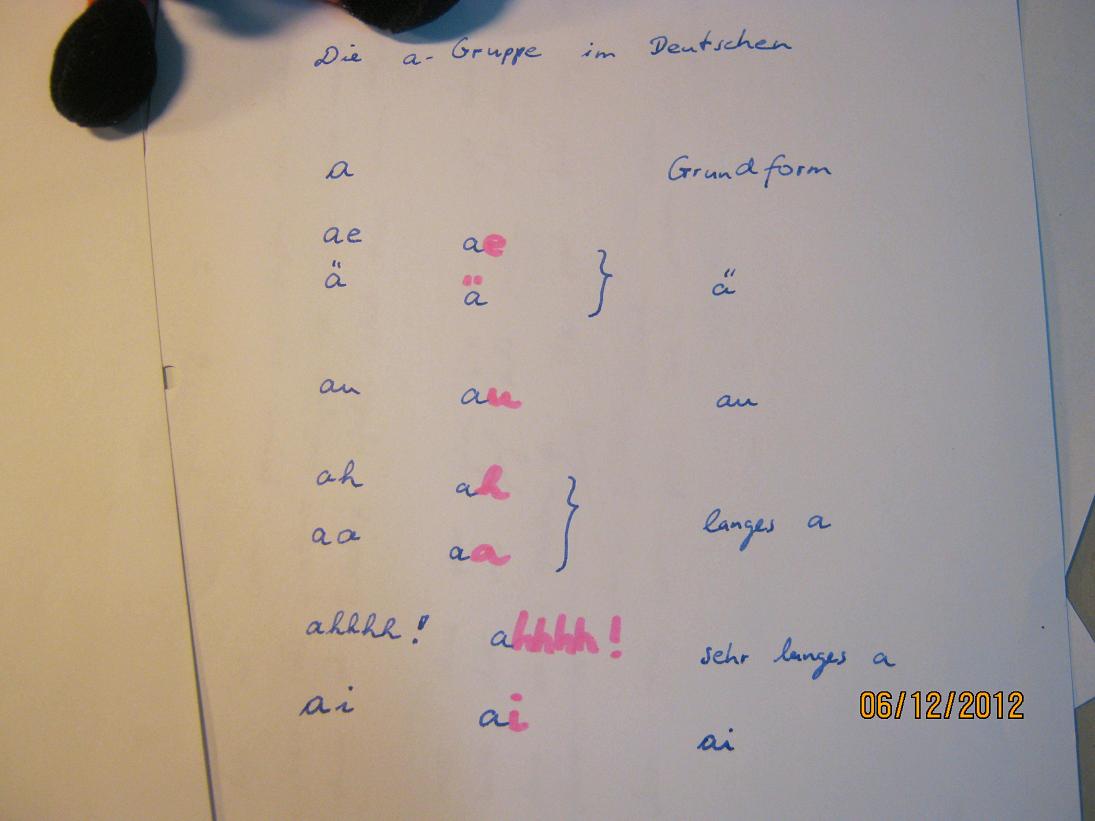 Die a-Gruppe im Deutschen
a Grundform
ae ae
ä ä } ä
au au au
ah ah
aa aa } langes a
ahhhh! ahhhh! sehr langes a
ai ai ai
06/12/2012